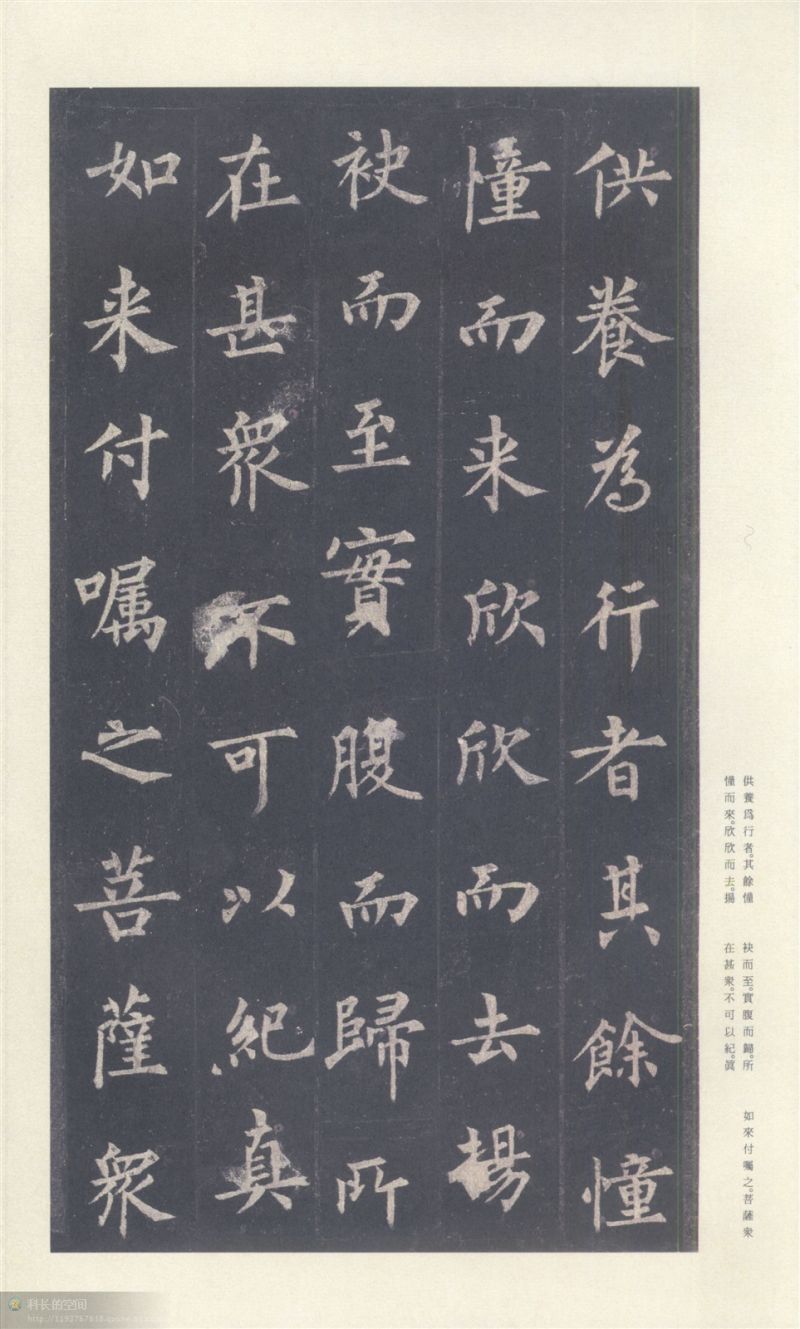 供養為行者其餘憧
憧而来欣欣而去揚
袂而至實腹而歸所
在甚衆不可以紀真
如来付嘱之菩薩衆
供養爲行者。其餘憧
憧而來。欣欣而去。揚
袂而至。實腹而歸。所
在甚衆。不可以紀。眞
如來付囑之。菩薩衆
科长的空间